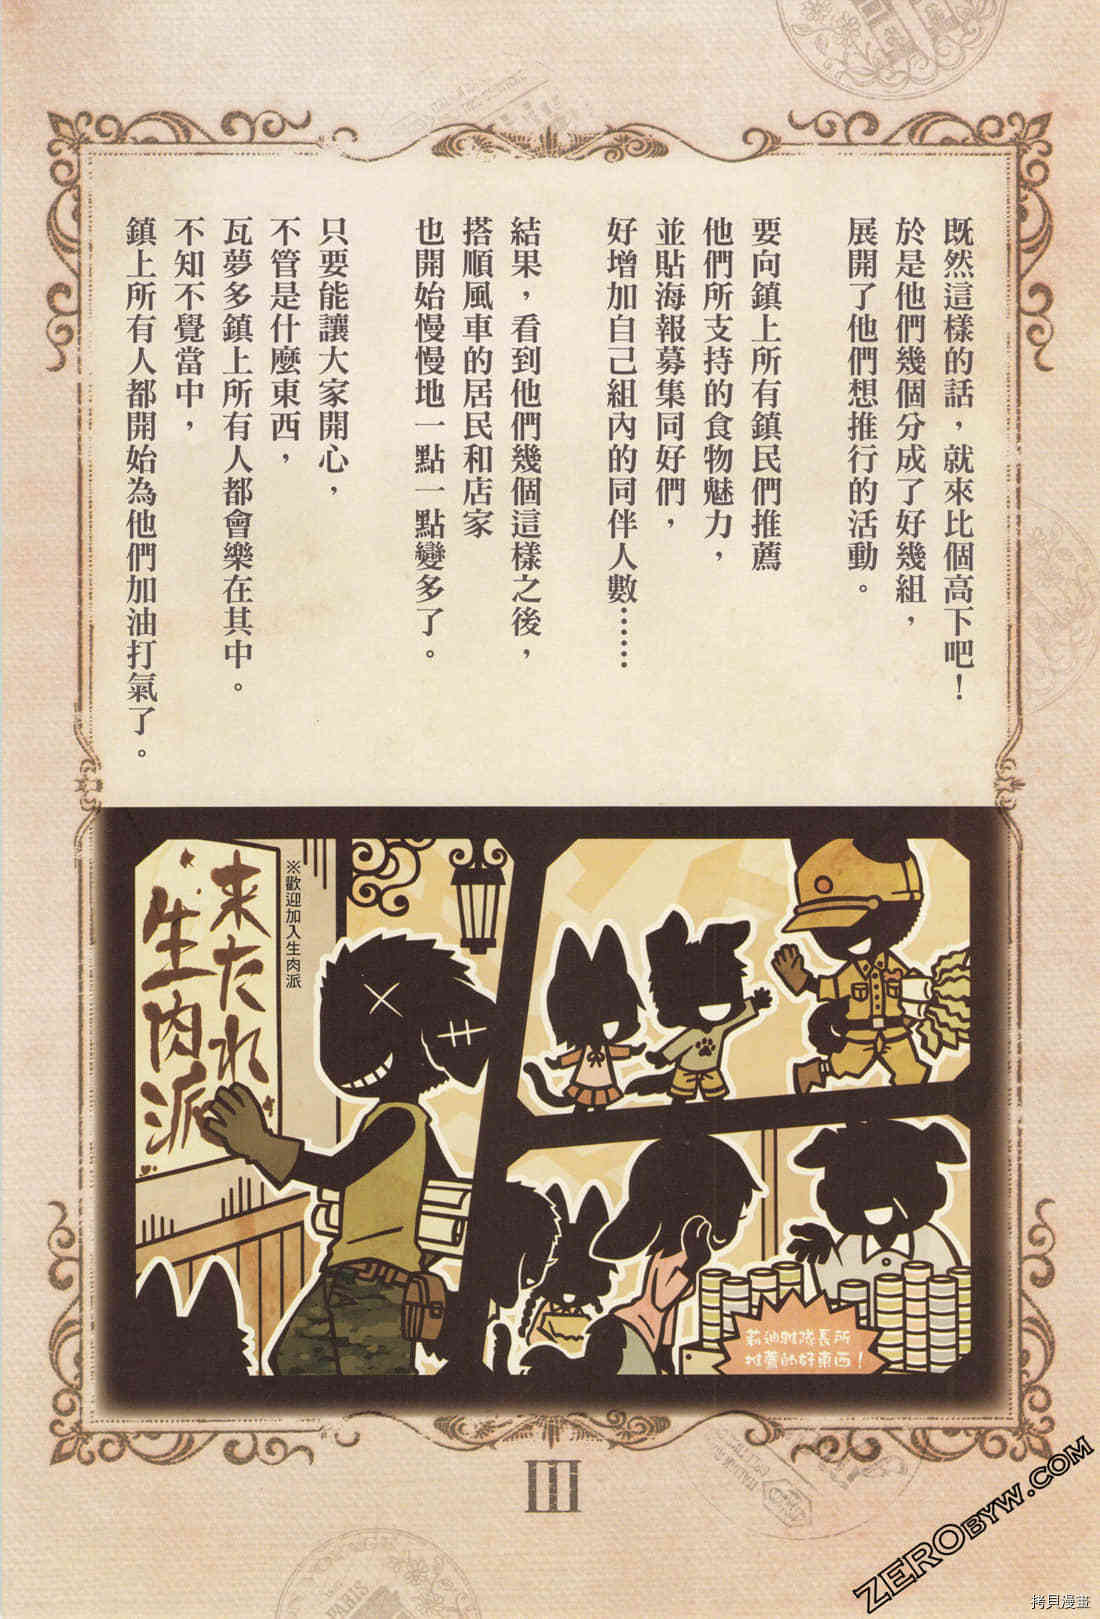 既然這樣的話，就來比個高下吧！
於是他們幾個分成了好幾組，
展開了他們想推行的活動。
要向鎮上所有鎮民們推薦
他們所支持的食物魅力，
並貼海報募集同好們，
好增加自己組內的同伴人數……
結果，看到他們幾個這樣之後，
搭順風車的居民和店家
也開始慢慢地一點一點變多了。
只要能讓大家開心，
不管是什麼東西，
瓦夢多鎮上所有人都會樂在其中。
不知不覺當中，
鎮上所有人都開始為他們加油打氣了。
※歡迎加入生肉派
来たれ
生肉派
莉迪雅隊長所
推薦的好東西！
III
ZEROBYW.COM
拷貝漫畫